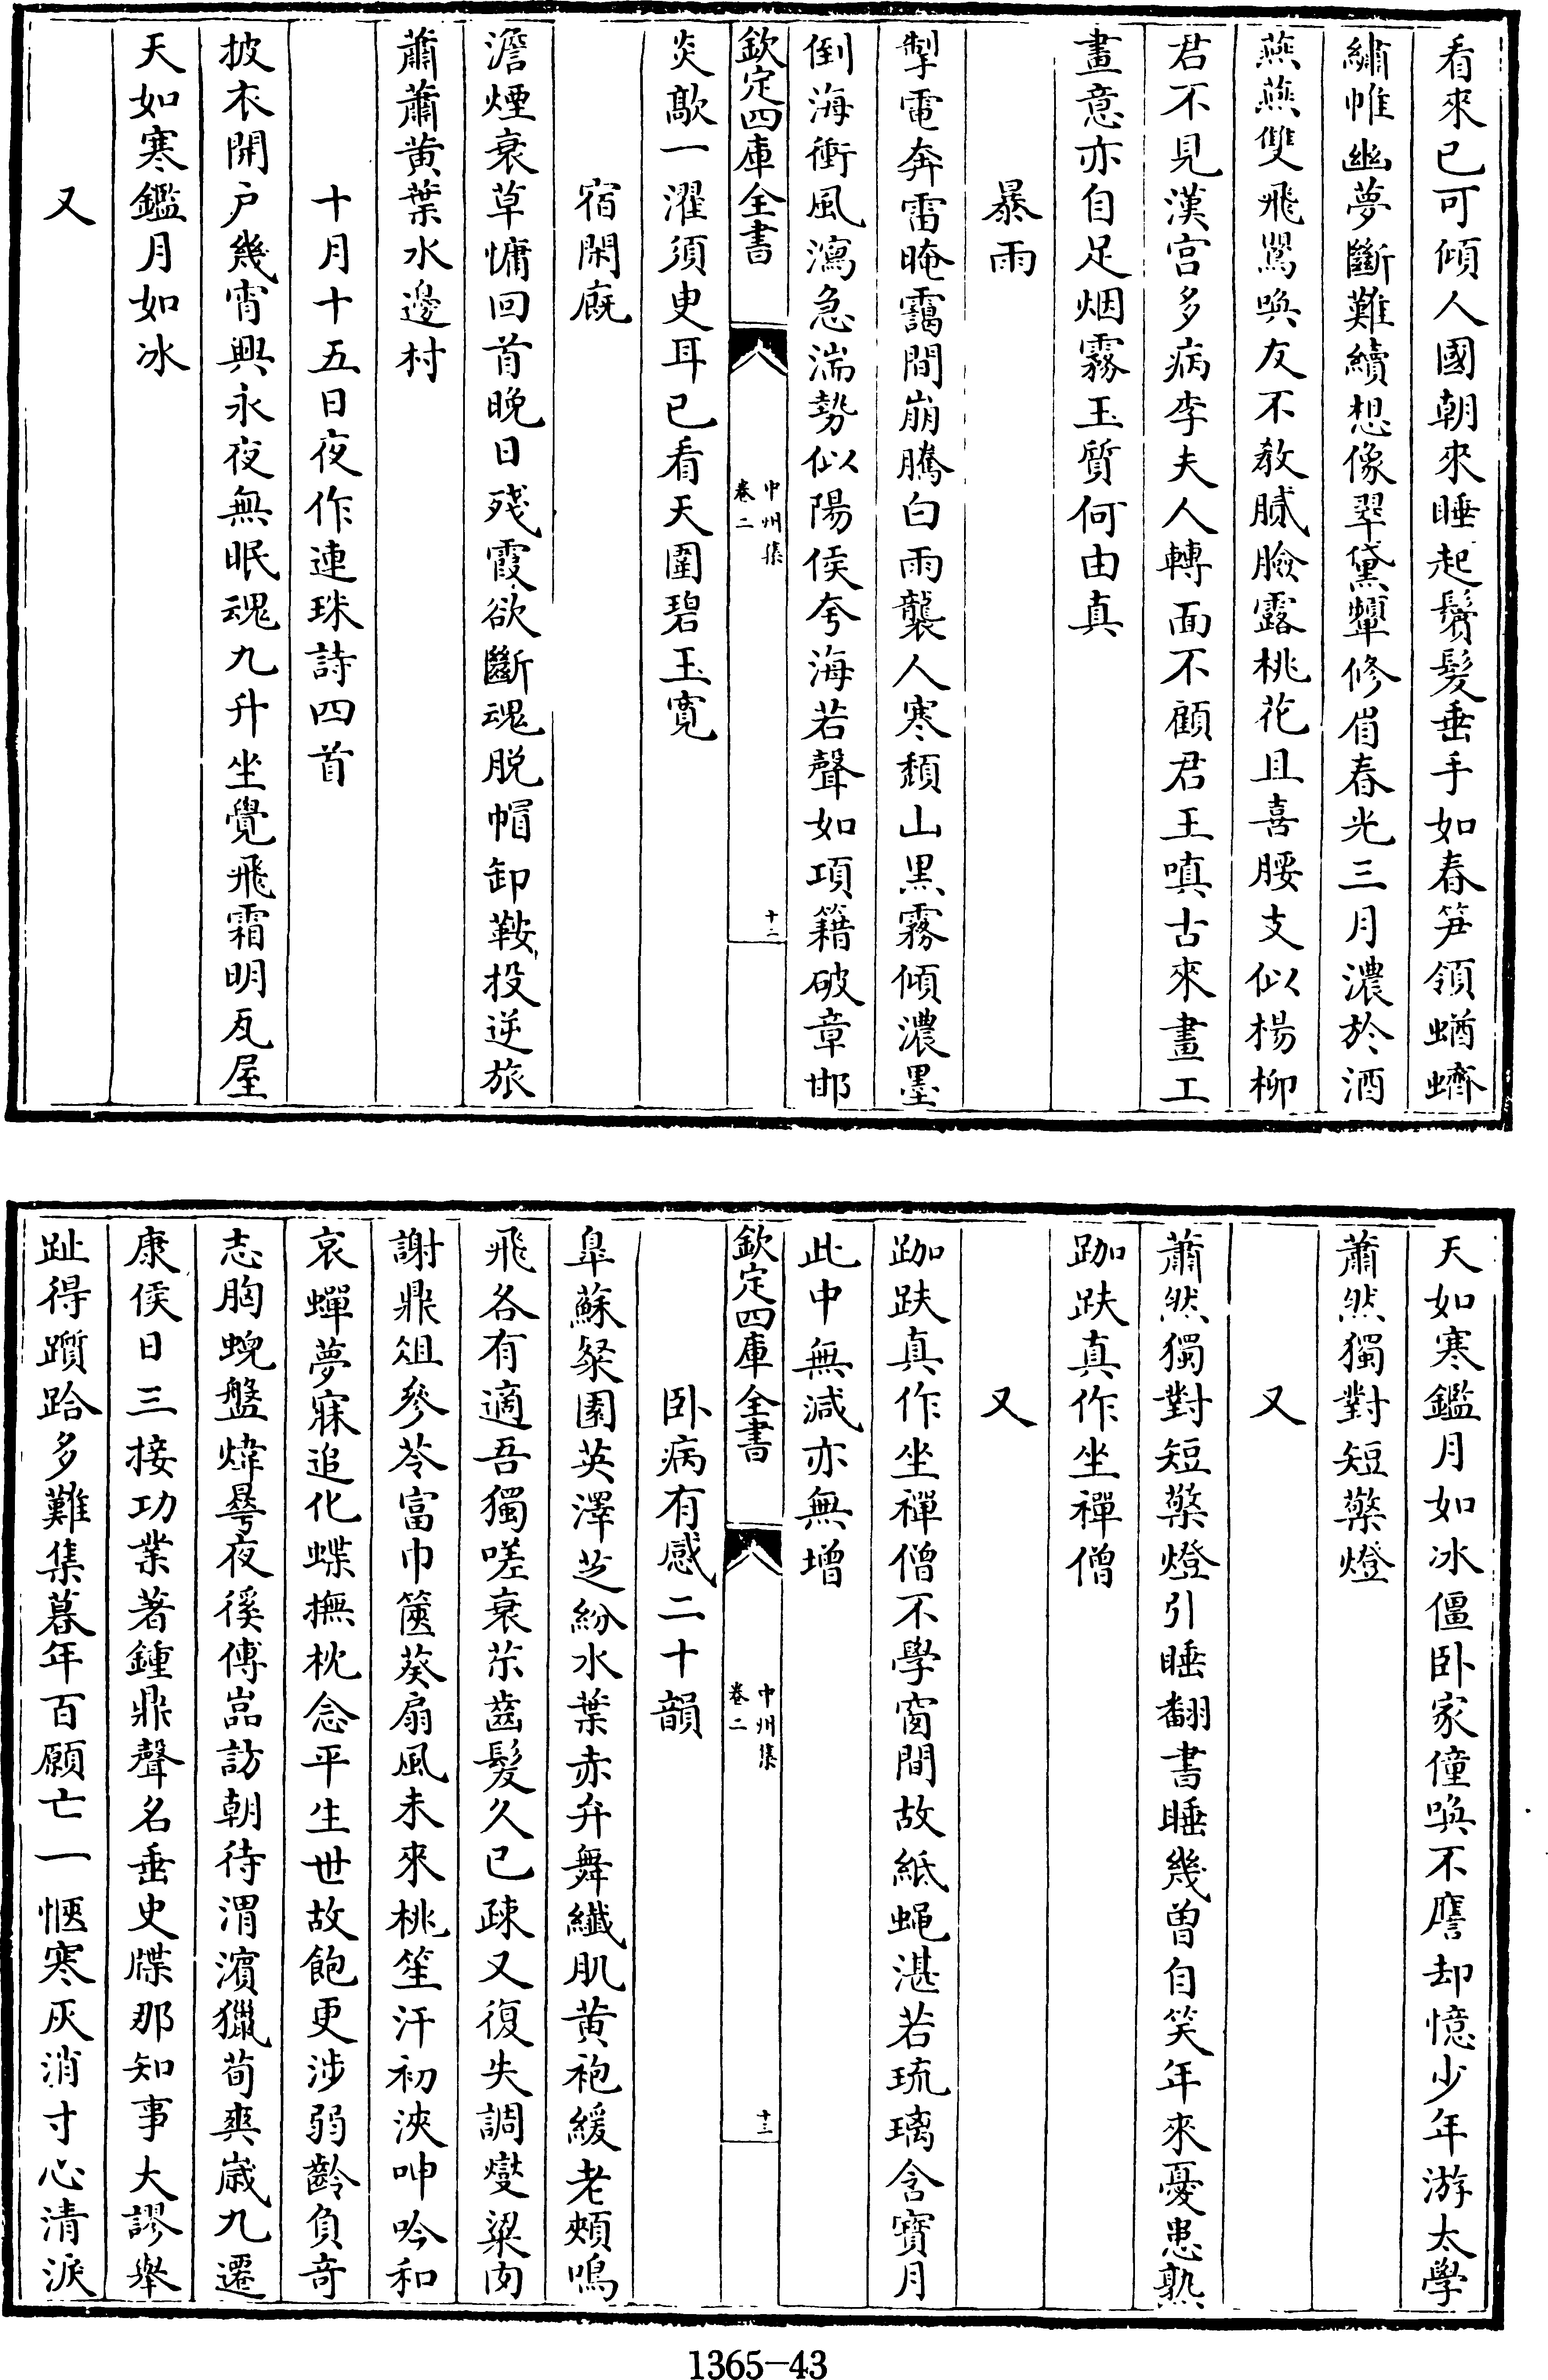 看來已可傾人國朝來睡起鬅髮垂手如春笋領蝤蠐
繡帷幽夢斷難續想像翠黛顰修眉春光三月濃於酒
燕燕雙飛鸎喚友不教膩臉露桃花且喜腰支似楊柳
君不見漢宫多病李夫人轉面不顧君王嗔古來畫工
畫意亦自足烟霧玉質何由真
暴雨
掣電奔雷晻靄間崩騰白雨襲人寒頽山黒霧傾濃墨
倒海衝風瀉急湍勢似陽侯夸海若聲如項籍破章邯
欽定四庫全書
中州集
卷二
十二
炎歊一濯須臾耳已看天圍碧玉寛
宿閑廐
澹煙衰草慵回首晚日殘霞欲斷魂脱帽卸鞍投逆旅
蕭蕭黄葉水邊村
十月十五日夜作連珠詩四首
披衣開户幾宵興永夜無眠魂九升坐覺飛霜明瓦屋
天如寒鑑月如冰
又
天如寒鑑月如冰僵卧家僮喚不譍却憶少年游太學
蕭然獨對短檠燈
又
蕭然獨對短檠燈引睡翻書睡幾曾自笑年來憂患熟
跏趺真作坐禪僧
又
跏趺真作坐禪僧不學窗間故紙蝇湛若琉璃含寳月
此中無減亦無增
欽定四庫全書
中州集
卷二
十三
卧病有感二十韻
臯蘇粲園英澤芝紛水葉赤弁舞纎肌黄袍緩老頰鳴
飛各有適吾獨嗟衰苶齒髮久已疎又復失調燮粱肉
謝鼎俎參苓富巾篋葵扇風未來桃笙汗初浹呻吟和
哀蟬夢寐追化蝶撫枕念平生世故飽更涉弱齡負奇
志胸蜺盤煒曅夜徯傅嵓訪朝待渭濱獵荀爽嵗九遷
康侯日三接功業著鍾鼎聲名垂史牒那知事大謬舉
趾得躓跲多難集暮年百願亡一愜寒灰消寸心清淚
1365-43